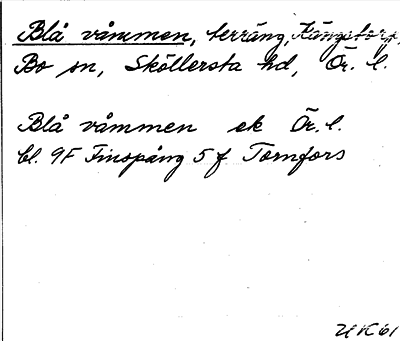 Blå våmmen, terräng, Kängstorp,
Bo sn, Sköllersta hd, Ör. l.
Blå våmmen ek Ör. l.
bl. 9F Finspång 5 f Tomfors
UK 61